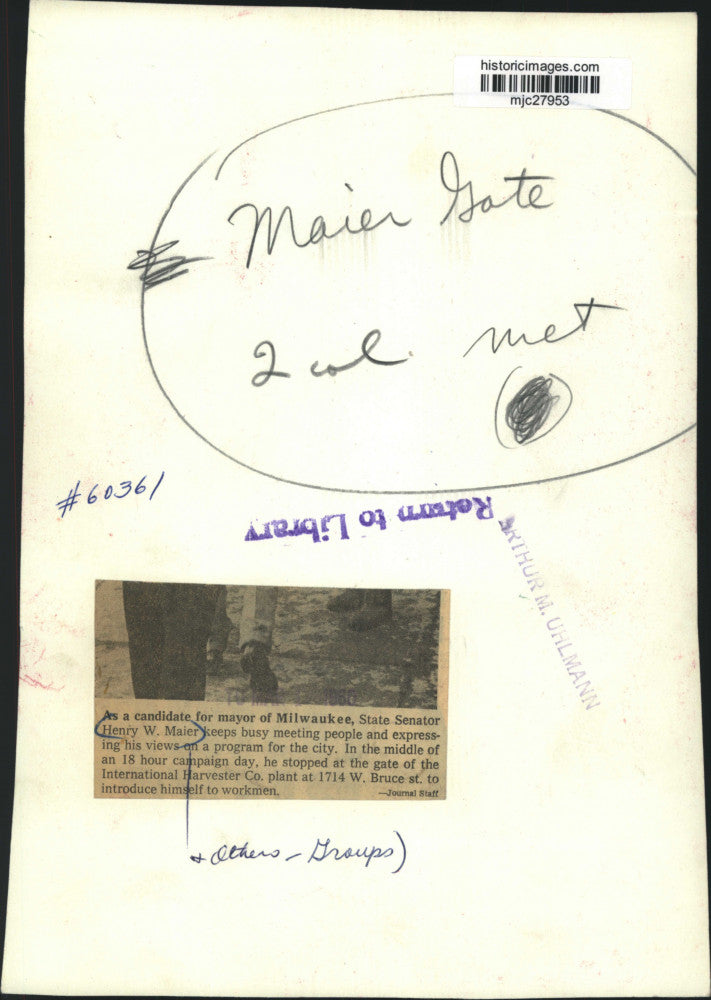 historicimages.com
mjc27953
Maier Gate
2 col. met
#60361
Return to Library
ARTHUR M. UHLMANN
As a candidate for mayor of Milwaukee, State Senator
Henry W. Maier keeps busy meeting people and express-
ing his views on a program for the city. In the middle of
an 18 hour campaign day, he stopped at the gate of the
International Harvester Co. plant at 1714 W. Bruce st. to
introduce himself to workmen.
—Journal Staff
+ Others - Groups)